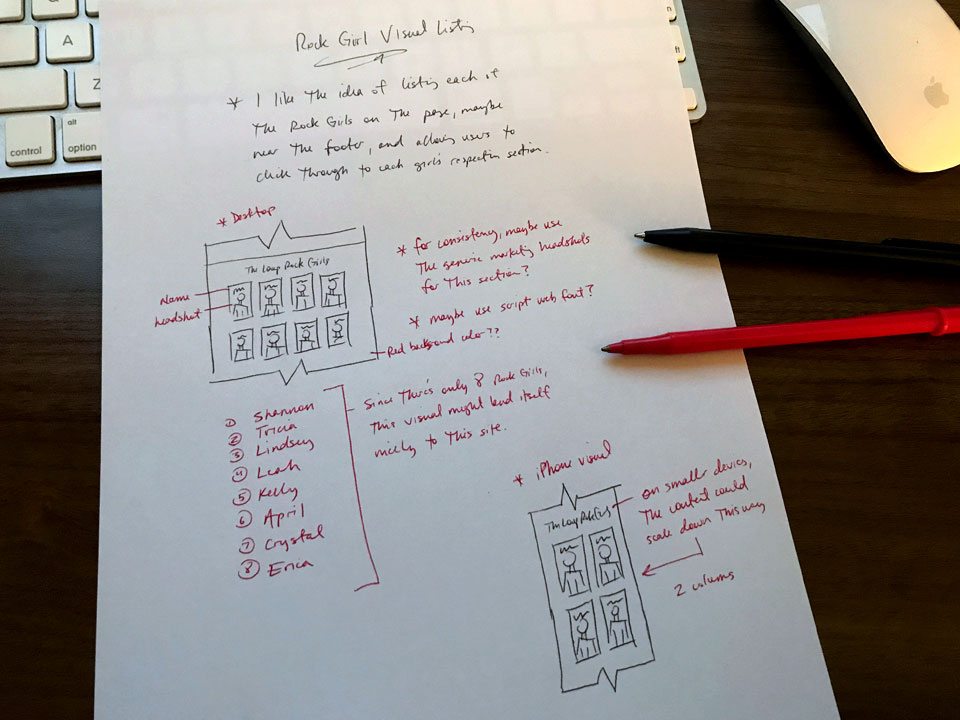 A
Z
control
alt
option
Rock Girl Visual Listing
* I like the idea of listing each of
the Rock Girls on the page, maybe
near the footer, and allowing users to
click through to each girl's respective section.
* Desktop
The Loop Rock Girls
Name
headshot
Red background color??
* for consistency, maybe use
the generic marketing headshots
for this section?
* maybe use script web font?
① Shannon
② Tricia
③ Lindsey
④ Leah
⑤ Kelly
⑥ April
⑦ Crystal
⑧ Erica
Since there's only 8 Rock Girls,
this visual might lend itself
nicely to this site.
* iPhone visual
The Loop Rock Girls
on smaller devices,
the content could
scale down this way
2 columns